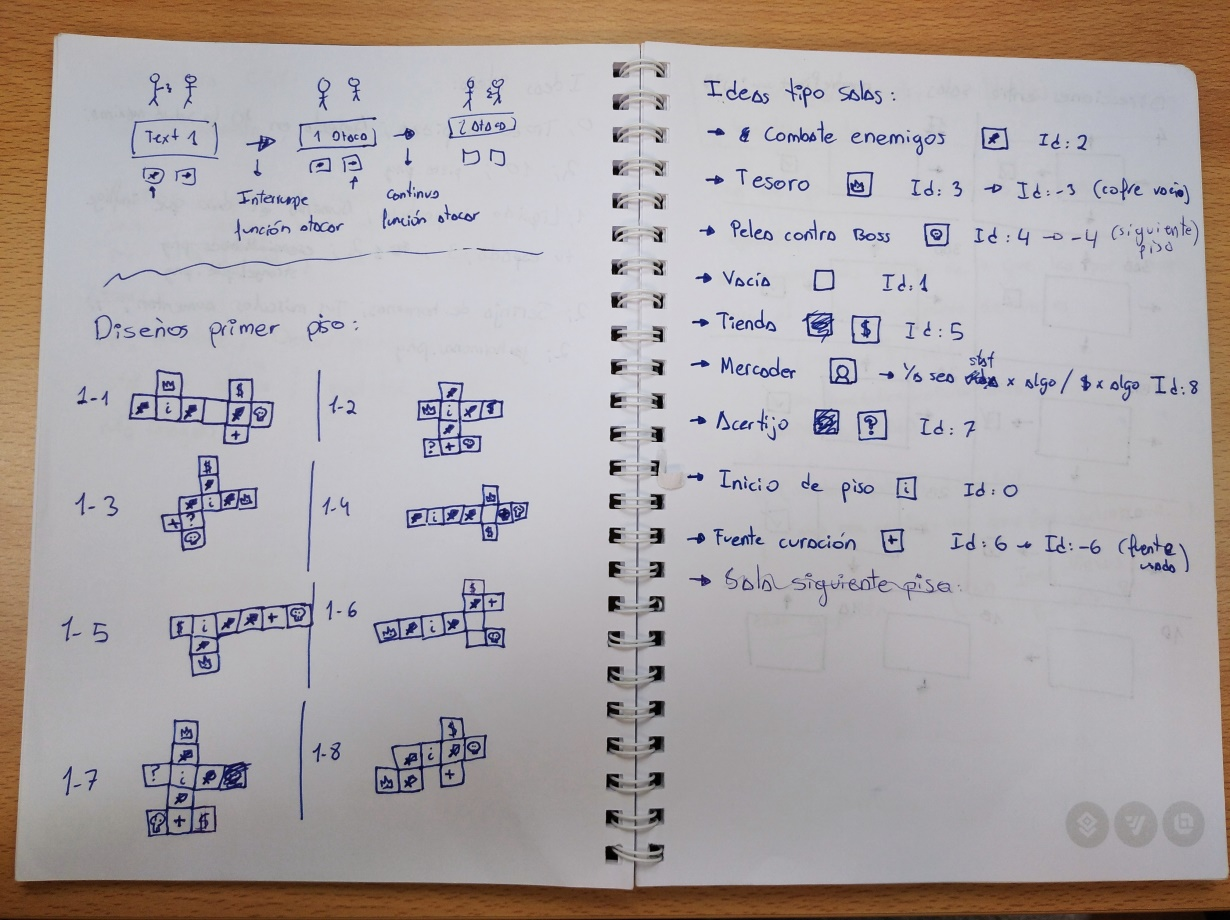 Text 1
1 Ataca
2 Ataca
Interrumpe
función atacar
continua
función atacar
Diseños primer piso:
1-1
$
i
+
1-2
i $
? +
1-3
$
i
+ ?
1-4
i
$
1-5
$ i +
1-6
$
+
i
1-7
? i
+ $
1-8
$
i
+
Ideas tipo salas:
→ Combate enemigos Id: 2
→ Tesoro Id: 3 → Id: -3 (cofre vacio)
→ Pelea contra Boss Id: 4 → -4 (siguiente
piso)
→ Vacía Id: 1
→ Tienda $ Id: 5
stat
→ Mercader → Ya sea x algo / $ x algo Id: 8
→ Acertijo ? Id: 7
→ Inicio de piso i Id: 0
→ Fuente curación + Id: 6 → Id: -6 (fuente
usada)
→ Sala siguiente piso.